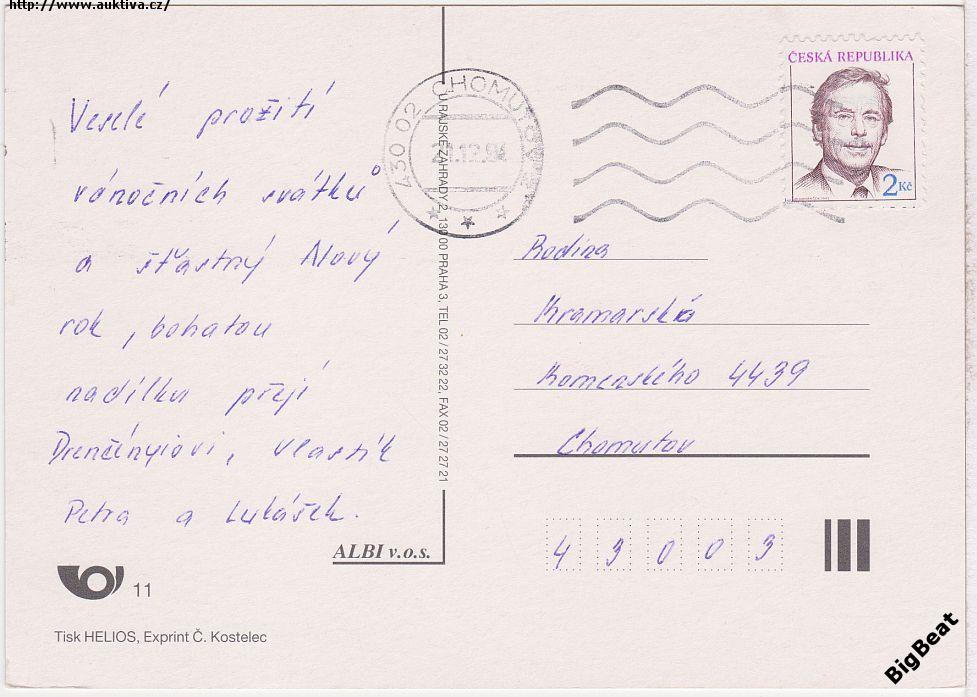 http://www.auktiva.cz/
Veselé prožití
vánočních svátků
a šťastný Nový
rok, bohatou
nadílku přejí
Drenčényiovi, Vlastík
Petra a Lukášek.
ALBI v.o.s.
11
Tisk HELIOS, Exprint Č. Kostelec
U RAJSKÉ ZAHRADY 2, 130 00 PRAHA 3, TEL 02 / 27 32 22, FAX 02 / 27 27 21
430 02 CHOMUTOV
ČESKÁ REPUBLIKA
2 Kč
Rodina
Kramarská
Komenského 4439
Chomutov
43003
BigBeat